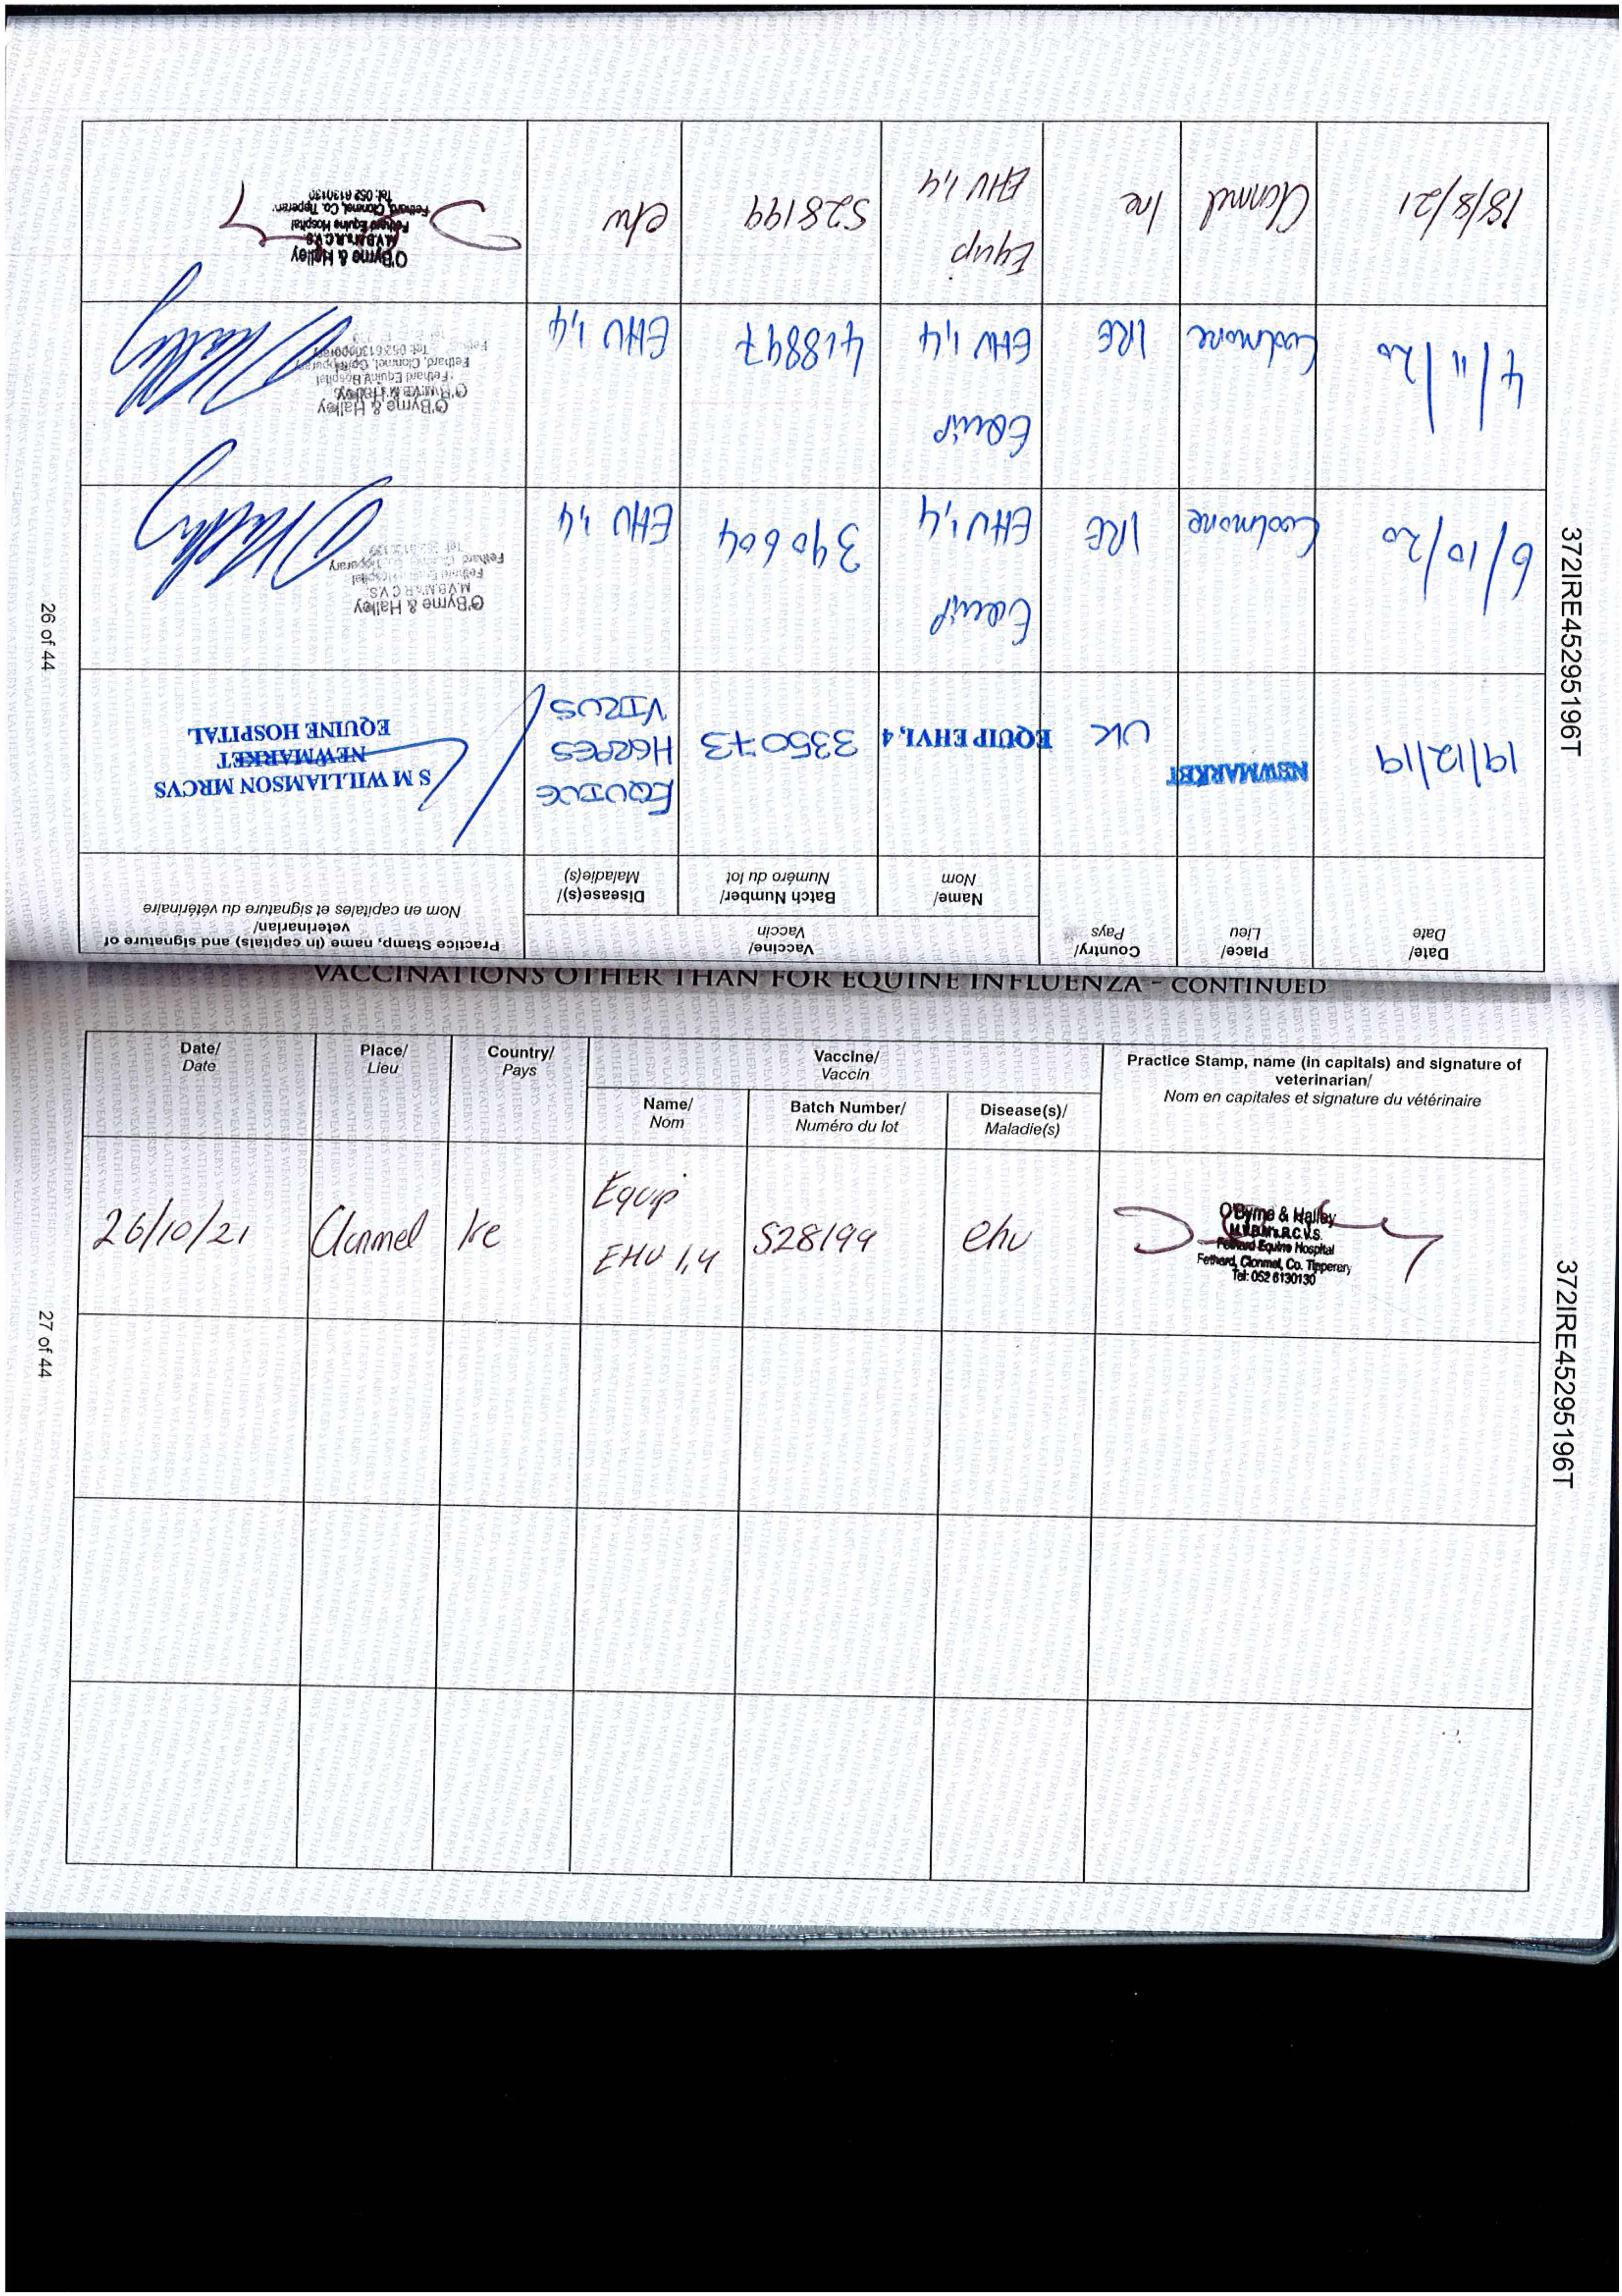 26 of 44
372IRE45295196T
Date/
Date
Place/
Lieu
Country/
Pays
Vaccine/
Vaccin
Name/
Nom
Batch Number/
Numéro du lot
Disease(s)/
Maladie(s)
Practice Stamp, name (in capitals) and signature of
veterinarian/
Nom en capitales et signature du vétérinaire
19/12/19
NEWMARKET
UK
EQUIP EHV1,4
335073
EQUINE
HERPES
VIRUS
S M WILLIAMSON MRCVS
NEWMARKET
EQUINE HOSPITAL
6/10/20
Coolmore
IRE
Equip
EHV 1,4
390604
EHV 1,4
O'Byrne & Halley
M.V.B.M's.R.C.V.S.
Fethard Equine Hospital
Fethard, Clonmel, Co. Tipperary
4/11/20
Coolmore
IRE
Equip
EHV 1,4
418847
EHV 1,4
O'Byrne & Halley
Fethard Equine Hospital
Fethard, Clonmel, Co. Tipperary
18/8/21
Clonmel
Ire
Equip
EHV 1,4
528199
ehv
O'Byrne & Halley
M.V.B.M's.R.C.V.S.
Fethard Equine Hospital
Fethard, Clonmel, Co. Tipperary
Tel: 052 6130130
VACCINATIONS OTHER THAN FOR EQUINE INFLUENZA - CONTINUED
Date/
Date
Place/
Lieu
Country/
Pays
Vaccine/
Vaccin
Name/
Nom
Batch Number/
Numéro du lot
Disease(s)/
Maladie(s)
Practice Stamp, name (in capitals) and signature of
veterinarian/
Nom en capitales et signature du vétérinaire
26/10/21
Clonmel
Ire
Equip
EHV 1,4
528199
ehv
O'Byrne & Halley
M.V.B.M's.R.C.V.S.
Fethard Equine Hospital
Fethard, Clonmel, Co. Tipperary
Tel: 052 6130130
27 of 44
372IRE45295196T